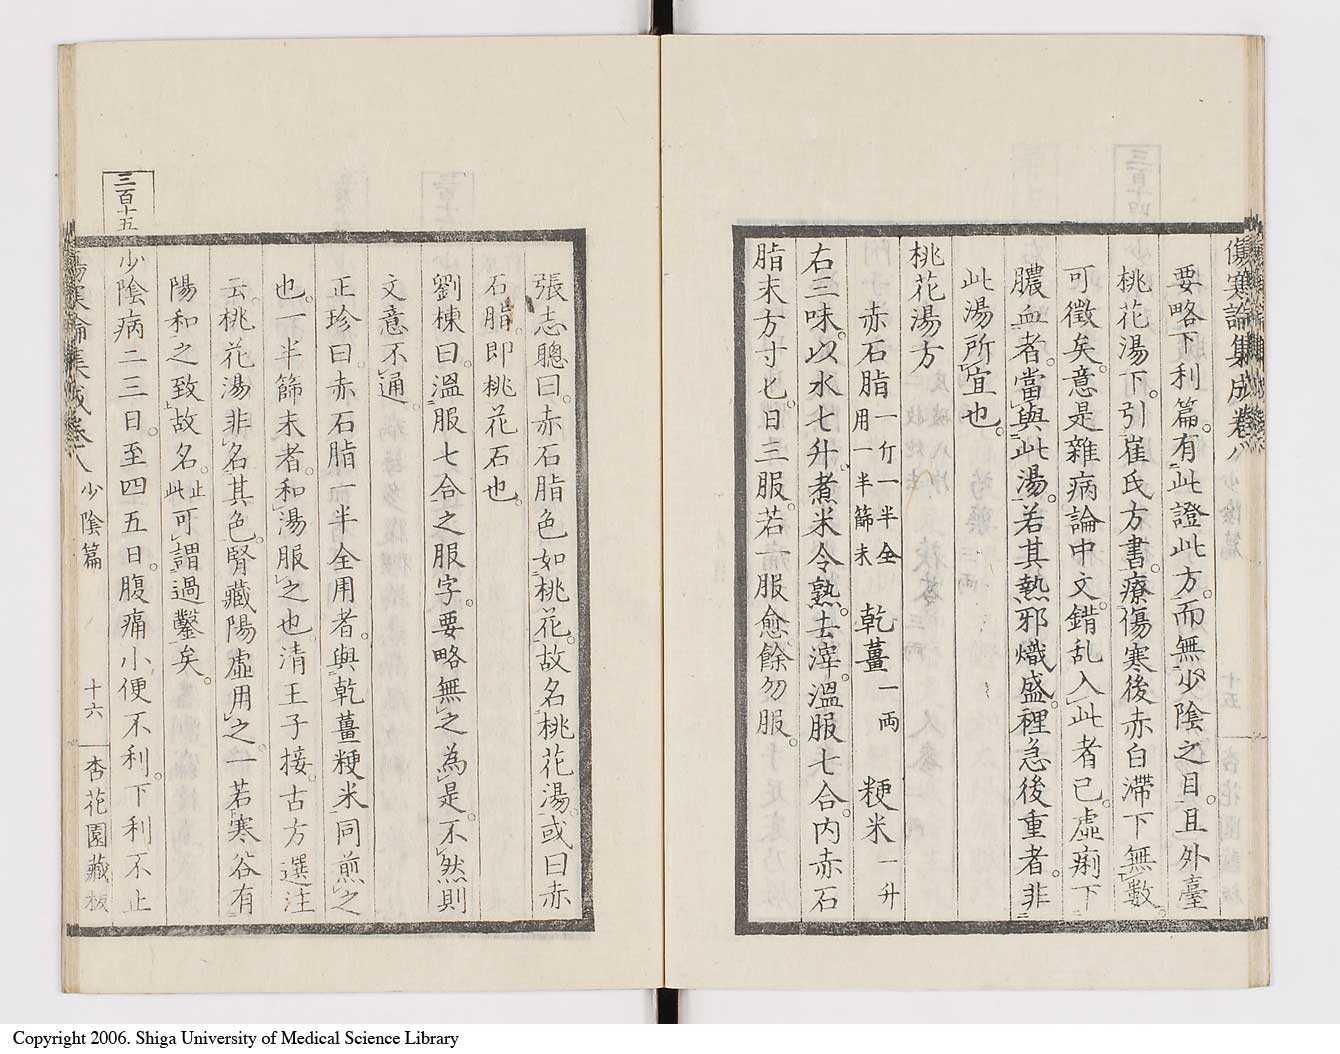 傷寒論集成卷八
少陰篇
十五
要略下利篇。有此證此方。而無少陰之目。且外臺
桃花湯下。引崔氏方書。療傷寒後赤白滯下無數。
可徵矣。意是雜病論中文。錯乱入此者已。虛痢下
膿血者。當與此湯。若其熱邪熾盛。裡急後重者。非
此湯所宜也。
桃花湯方
赤石脂一斤一半全用一半篩末 乾薑一両 粳米一升
右三味。以水七升。煮米令熟。去滓。溫服七合。内赤石
脂末方寸匕。日三服。若一服愈餘勿服。
張志聰曰。赤石脂色如桃花。故名桃花湯。或曰赤
石脂。即桃花石也。
劉棟曰。溫服七合之服字。要略無之為是。不然則
文意不通。
正珍曰。赤石脂一半全用者。與乾薑粳米同煎之
也。一半篩末者。和湯服之也。清王子接。古方選注
云。桃花湯非名其色。腎藏陽虛用之。一若寒谷有
陽和之致。故名。止此可謂過鑿矣。
三百十五
少陰病二三日。至四五日。腹痛小便不利。下利不止
傷寒論集成卷八
少陰篇
十六
杏花園藏板
Copyright 2006. Shiga University of Medical Science Library